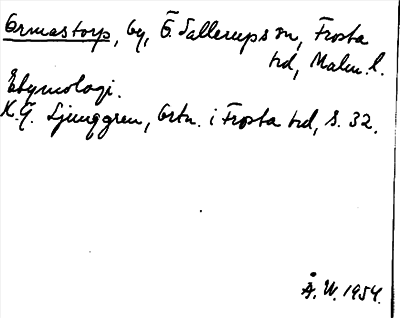 Ormastorp, by, Ö. Sallerups sn, Frosta
hd, Malm. l.
Etymologi.
K.G. Ljunggren, Ortn. i Frosta hd, s. 32.
Å. W. 1954.